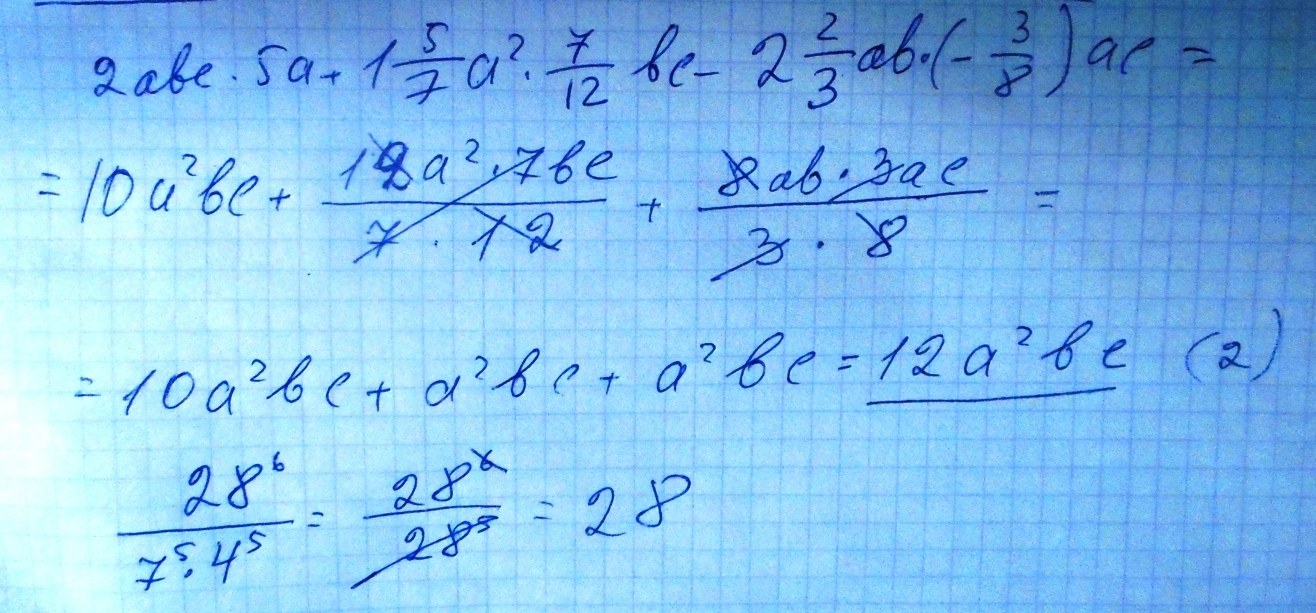 2abc · 5a + 1 5/7 a² · 7/12 bc - 2 2/3 ab · (- 3/8) ac =
= 10a²bc + 12a² · 7bc / 7 · 12 + 8ab · 3ac / 3 · 8 =
= 10a²bc + a²bc + a²bc = 12a²bc (2)
28⁶ / 7⁵ · 4⁵ = 28⁶ / 28⁵ = 28